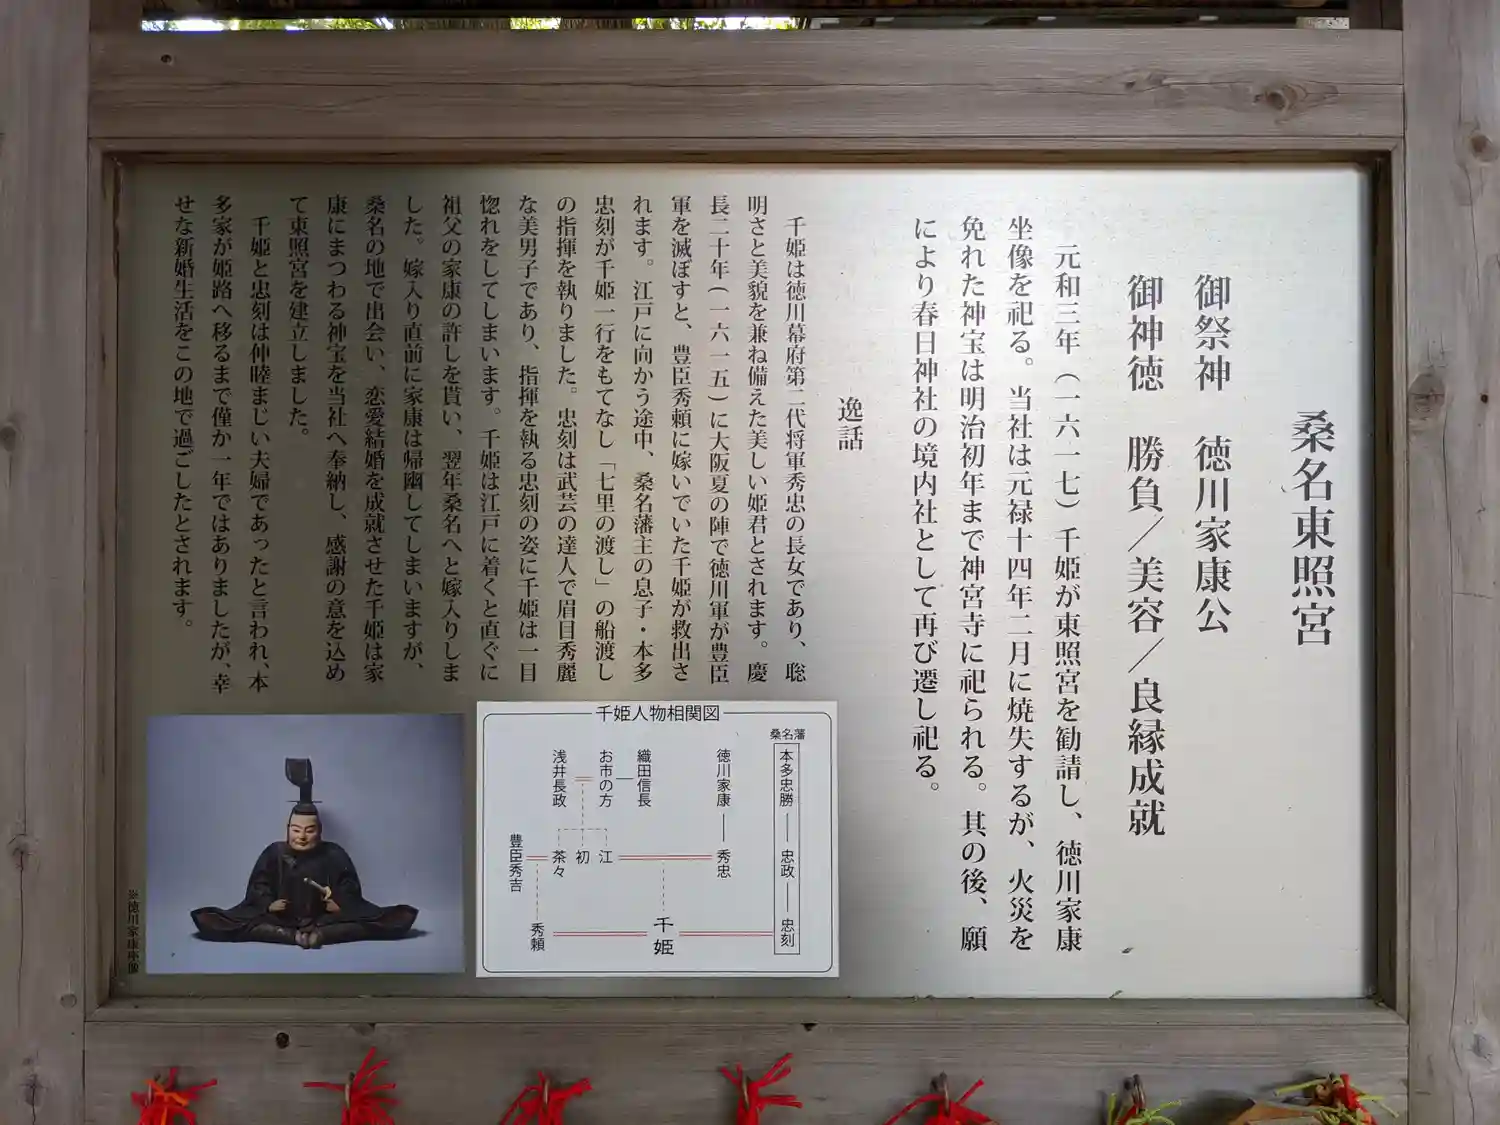 桑名東照宮
御祭神　徳川家康公
御神徳　勝負／美容／良縁成就
元和三年（一六一七）千姫が東照宮を勧請し、徳川家康
坐像を祀る。当社は元禄十四年二月に焼失するが、火災を
免れた神宝は明治初年まで神宮寺に祀られる。其の後、願
により春日神社の境内社として再び遷し祀る。
逸話
千姫は徳川幕府第二代将軍秀忠の長女であり、聡
明さと美貌を兼ね備えた美しい姫君とされます。慶
長二十年(一六一五)に大阪夏の陣で徳川軍が豊臣
軍を滅ぼすと、豊臣秀頼に嫁いでいた千姫が救出さ
れます。江戸に向かう途中、桑名藩主の息子・本多
忠刻が千姫一行をもてなし「七里の渡し」の船渡し
の指揮を執りました。忠刻は武芸の達人で眉目秀麗
な美男子であり、指揮を執る忠刻の姿に千姫は一目
惚れをしてしまいます。千姫は江戸に着くと直ぐに
祖父の家康の許しを貰い、翌年桑名へと嫁入りしま
した。嫁入り直前に家康は帰幽してしまいますが、
桑名の地で出会い、恋愛結婚を成就させた千姫は家
康にまつわる神宝を当社へ奉納し、感謝の意を込め
て東照宮を建立しました。
千姫と忠刻は仲睦まじい夫婦であったと言われ、本
多家が姫路へ移るまで僅か一年ではありましたが、幸
せな新婚生活をこの地で過ごしたとされます。
千姫人物相関図
桑名藩
本多忠勝
忠政
忠刻
徳川家康
秀忠
織田信長
お市の方
浅井長政
江
初
茶々
豊臣秀吉
千姫
秀頼
※徳川家康座像